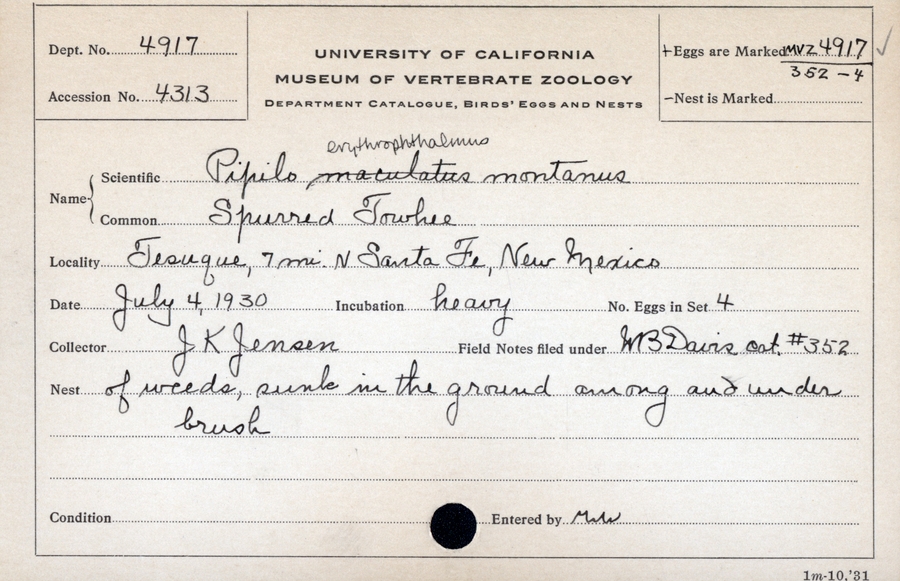 Dept. No. 4917
Accession No. 4313
UNIVERSITY OF CALIFORNIA
MUSEUM OF VERTEBRATE ZOOLOGY
DEPARTMENT CATALOGUE, BIRDS' EGGS AND NESTS
+Eggs are Marked MVZ 4917 ✓
352-4
-Nest is Marked
erythrophthalmus
Name { Scientific Pipilo maculatus montanus
Common Spurred Towhee
Locality Tesuque, 7 mi. N Santa Fe, New Mexico
Date July 4, 1930 Incubation heavy No. Eggs in Set 4
Collector J K Jensen Field Notes filed under WB Davis cat. #352
Nest of weeds, sunk in the ground among and under
brush
Condition Entered by
1m-10,'31